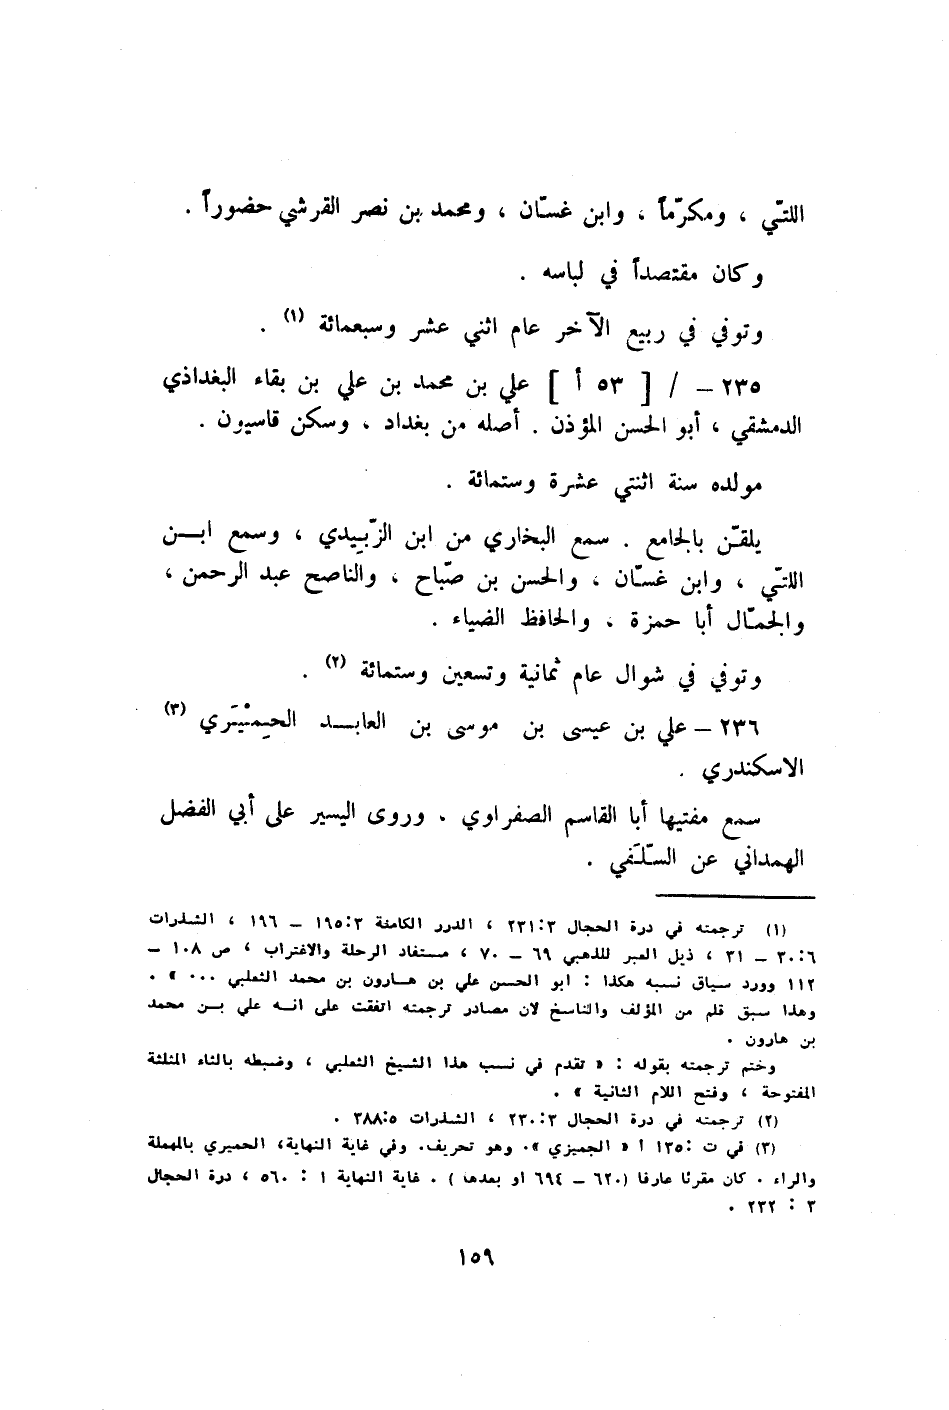 اللتّي ، ومكرّماً ، وابن غسّان ، ومحمد بن نصر القرشي حضوراً .
وكان مقتصداً في لباسه .
وتوفي في ربيع الآخر عام اثني عشر وسبعمائة (١) .
٢٣٥ – / [ ٥٣ أ ] علي بن محمد بن علي بن بقاء البغداذي
الدمشقي ، أبو الحسن المؤذن . أصله من بغداد ، وسكن قاسيون .
مولده سنة اثنتي عشرة وستمائة .
يلقّن بالجامع . سمع البخاري من ابن الزّبيدي ، وسمع ابـــن
اللتّي ، وابن غسّان ، والحسن بن صّباح ، والناصح عبد الرحمن ،
والجمّال أبا حمزة ، والحافظ الضياء .
وتوفي في شوال عام ثمانية وتسعين وستمائة (٢) .
٢٣٦ – علي بن عيسى بن موسى بن العابـــد الحِمْيَري (٣)
الاسكندري .
سمع مفتيها أبا القاسم الصفراوي . وروى اليسير على أبي الفضل
الهمداني عن السّلَفي .
(١) ترجمته في درة الحجال ٢٣١:٣ ، الدرر الكامنة ١٩٥:٣ – ١٩٦ ، الشذرات
٣٠:٦ – ٣١ ، ذيل العبر للذهبي ٦٩ – ٧٠ ، مستفاد الرحلة والاغتراب ، ص ١٠٨ –
١١٢ وورد سياق نسبه هكذا : ابو الحسن علي بن هــارون بن محمد الثعلبي ... » .
وهذا سبق قلم من المؤلف والناسخ لان مصادر ترجمته اتفقت على انــه علي بــن محمد
بن هارون .
وختم ترجمته بقوله : « تقدم في نسب هذا الشيخ الثعلبي ، وضبطه بالثاء المثلثة
المفتوحة ، وفتح اللام الثانية » .
(٢) ترجمته في درة الحجال ٢٣٠:٣ ، الشذرات ٣٨٨:٥ .
(٣) في ت :١٣٥ أ « الجميزي ». وهو تحريف. وفي غاية النهاية، الحميري بالمهملة
والراء . كان مقرئا عارفا (٦٢٠ – ٦٩٤ او بعدها ) . غاية النهاية ١ : ٥٦٠ ، درة الحجال
٣ : ٢٣٢ .
١٥٩